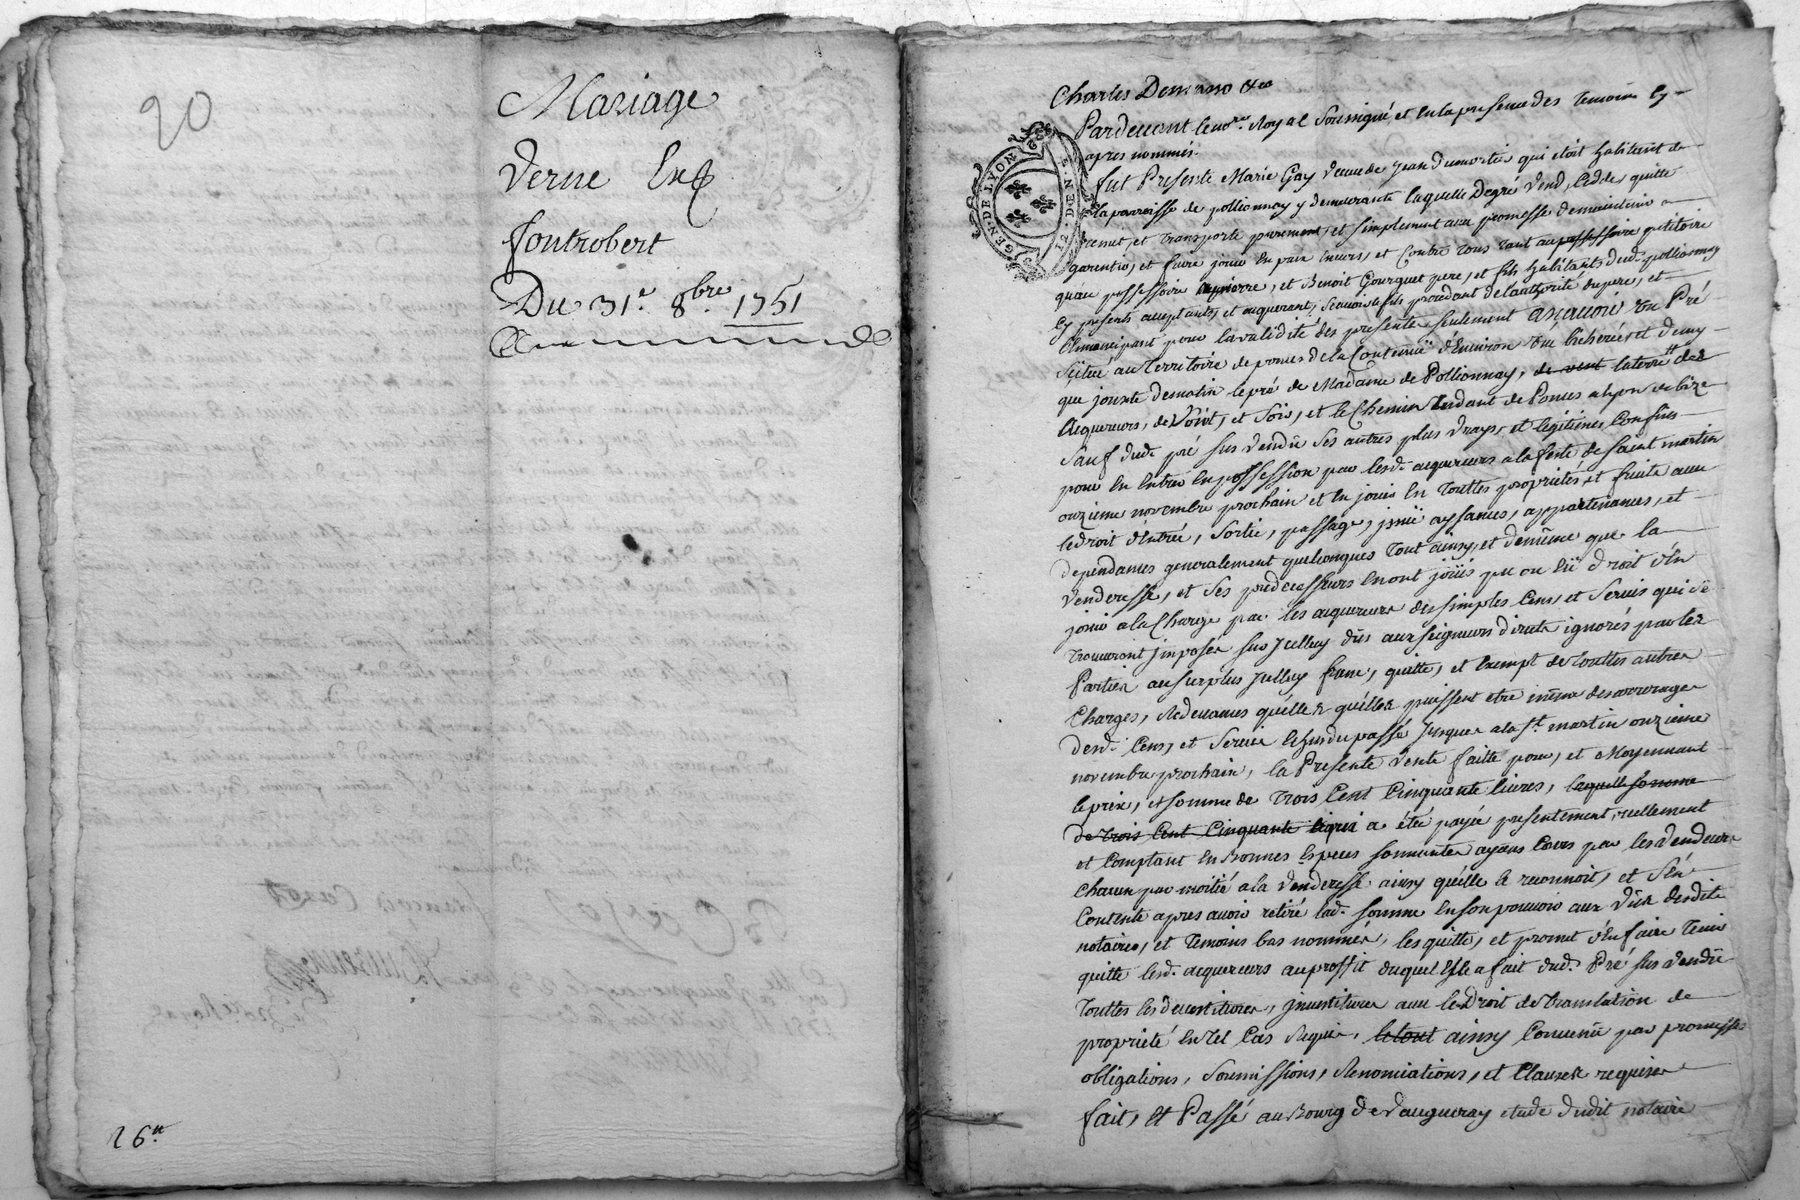 20
Mariage
Verne Et
fontrobert
Du 31e. 8bre. 1751
26#
Charles Demasso &a
Pardevant le nore. Royal Soussigné, et en la presence des temoins cy
apres nommés.
GEN. DE LYON
12 DEN rs
fut Presente Marie Gay veuve de Jean dumortier qui étoit habitant de
la parroisse de pollionnay y demeurante laquelle Degré vend, Cedde, quitte
remet, et transporte purement, et simplement aux promesse de maintenir
garentir, et faire jouir en paix envers, et Contre tous tant au possessoire petitoire
quau possessoire a pierre, et Benoit Gourguet pere, et fils habitants dud. pollionnay
Cy presents acceptants, et acquerants, scavoir le fils procedant de l'authorité du pere, et
Emancipant pour la validité des presentes seulement Asçavoir Un Pré
scitué au Territoire de ponies de la Contenüe d'Environ Une bicherée et demy
que jouxte de matin le pré de Madame de Pollionnay, de vent la terre des
Acquereurs, de Vent, et Soir, et le Chemin tendant de Ponies a lyon de bize
Sauf dud. pré sus vendu ses autres plus vrays, et legitimes Confins
pour en entrer en possession par lesd. acquereurs a la feste de saint martin
onzieme novembre prochain et en jouir en touttes proprietés, et fruits aux
le droit d'entrée, sortie, passage, jssüe aysances, appartenances, et
dependances generalement quelconques tout ainsy, et de même que la
Venderesse, et Ses predecesseurs en ont joüis pu ou eü droit d'En
jouir a la Charge par les acquereurs des simples Cens, et Servis qui se
trouveront jmposés sur jcelluy dus aux seigneurs directs ignorés par les
Parties au surplus jcelluy franc, quitte, et exempt de touttes autres
Charges, Redevances qu'elles qu'elles puissent etre même des arrerages
desd. Cens, et Servis echus du passé jusques a la St. martin onzieme
novembre prochain, la Presente vente faitte pour, et Moyennant
le prix, et somme de trois Cent Cinquante livres, laquelle somme
de trois Cent Cinquante livres a été payée presentement, reellement
et Comptant en Bonnes Especes sonnantes ayans Cours par les Vendeurs
Chacun par moitié a la Venderesse ainsy qu'elle le reconnoit, et S'en
Contente apres avoir retiré lad. somme en son pouvoir aux vües desdits
notaires, et temoins bas nommés, les quitte, et promet d'en faire tenir
quitte lesd. acquereurs au proffit duquel Elle a fait dud. Pré sus vendu
touttes les devestitures, jnvestitures avec le Droit de translation de
propriété en tel Cas Requis, le tout ainsy Convenu par promesses
obligations, Soumissions, Renonciations, et Clauses requises
fait, Et Passé au Bourg de Vaugneray etude dudit notaire